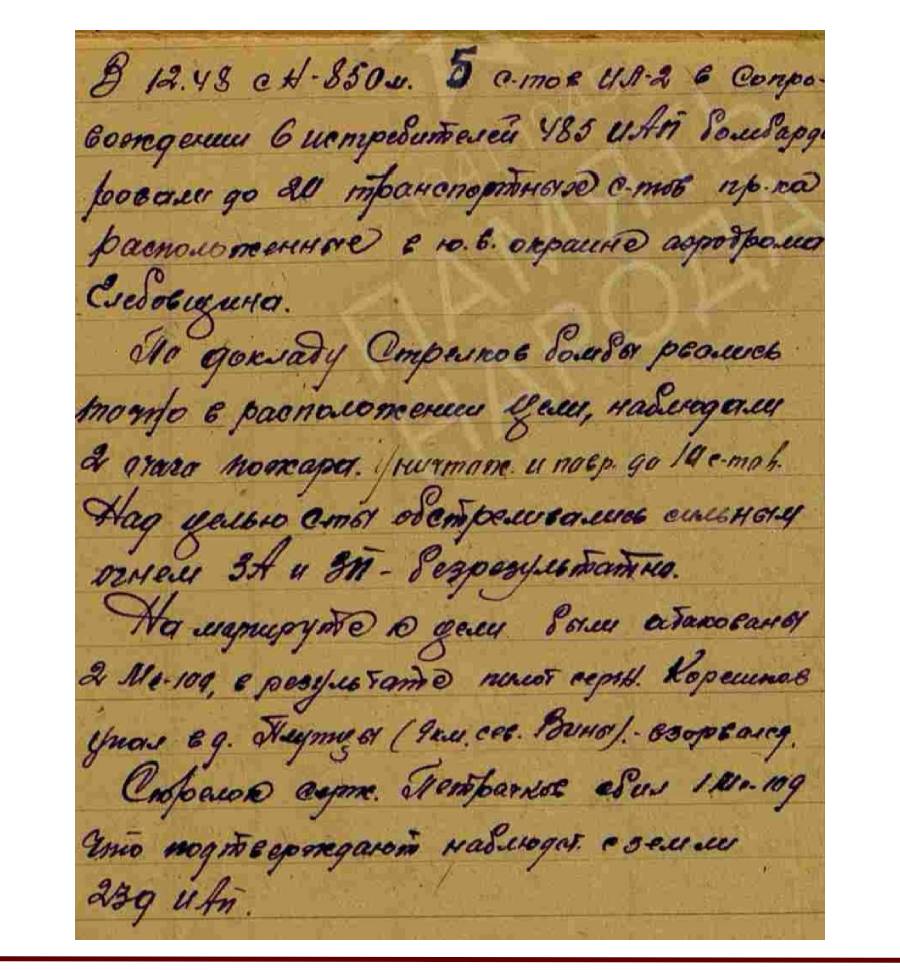 В 12.48 с Н-850м. 5 с-тов ИЛ-2 в Сопро-
вождении 6 истребителей 485 ИАП бомбарди
ровали до 20 транспортных с-тов пр-ка
расположенные в ю.в. окраине аэродрома
Глебовщина.
По докладу Стрелков бомбы рвались
точно в расположении Цели, наблюдали
2 очага пожара. Уничтож. и повр. до 10 с-тов.
Над целью с-ты обстреливались сильным
огнем ЗА и ЗП - безрезультатно.
На маршруте к цели были атакованы
2 Ме-109, в результате пилот серж. Корешков
упал в д. Плутцы (9км. сев. Вины). - взорвался.
Стрелок серж. Петрачков сбил 1 Ме-109
что подтверждают наблюдат. с земли
239 ИАП.
ПАМЯТЬ
НАРОДА